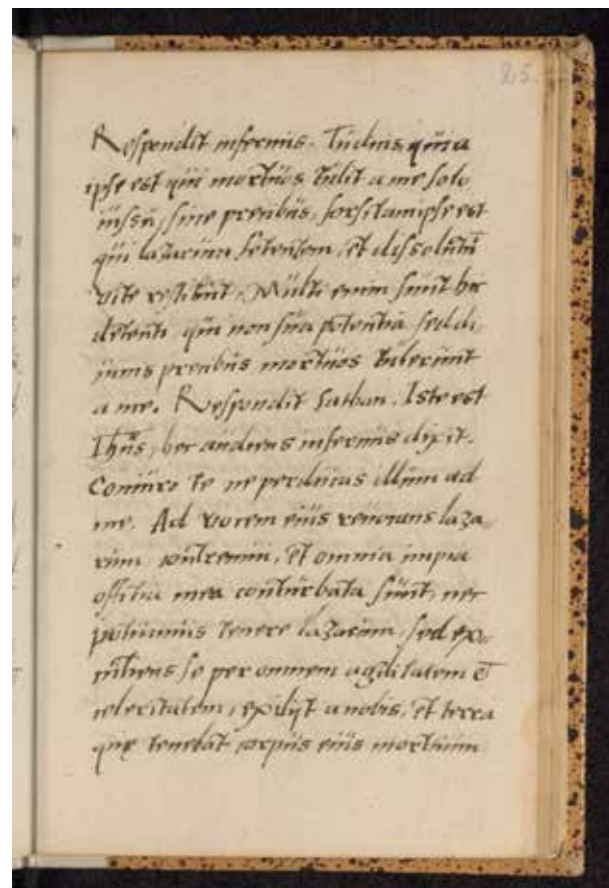 25.
Respondit infernus. Tu dixis quia
ipse est qui mortuos tulit a me solo
iussu, sine precibus, forsitam ipse est
qui lazarum fetentem, et dissolutū
vite restituit, Multi enim sunt hic
detenti qui non sua potentia sed di,
uinis precibus mortuos tulerunt
a me. Respondit sathan. Iste est
Ihūs, hec audiens infernus dixit.
Coniuro te ne perducas illum ad
me. Ad vocem eius reuocans laza,
rum contremui, et omnia impia
offitia mea conturbata sunt, nec
potuimus tenere lazarum, sed ex,
mitiens se per omnem agilitatem et
celeritatem, exilijt a nobis, et terra
quę tenebat corpus eius mortuum